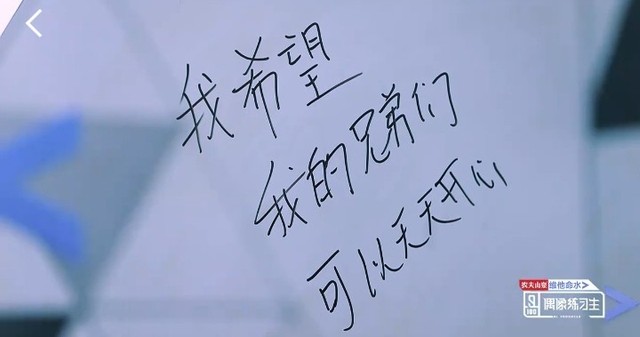 我希望
我的兄弟们
可以天天开心
农夫山泉 维他命水
偶像练习生